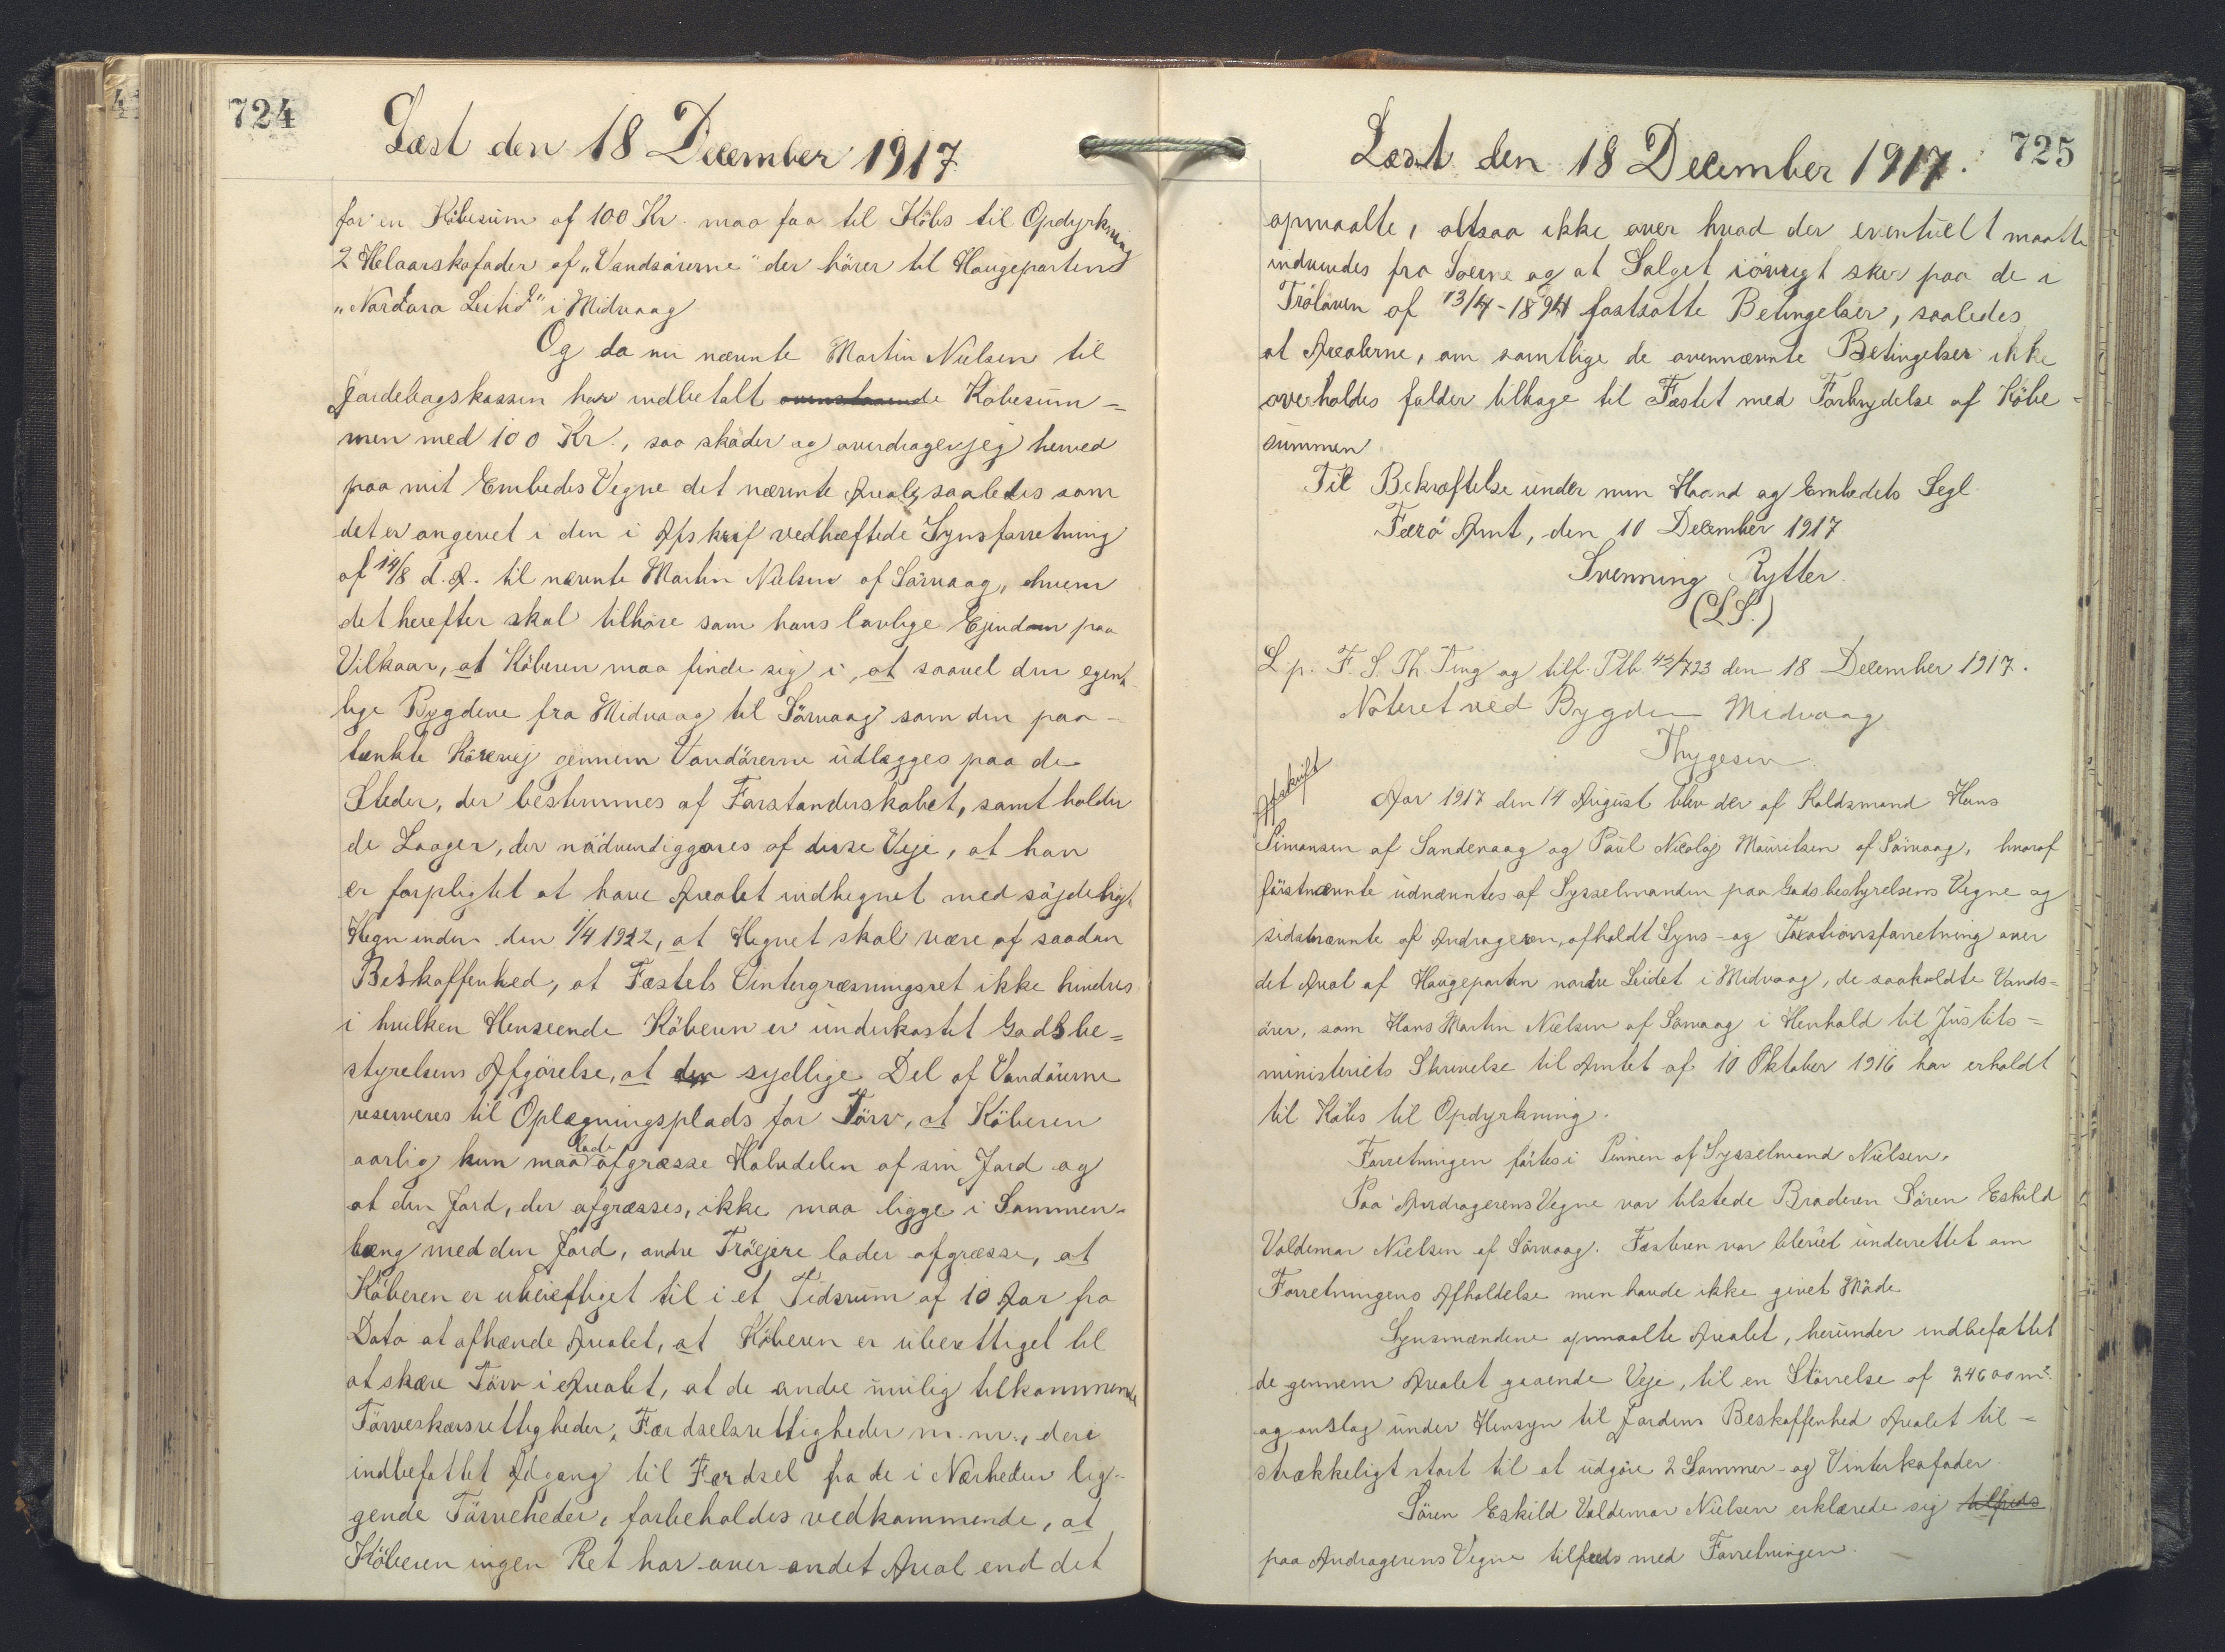 724
Læst den 18 December 1917
for en Köbesum af 100 Kr. maa faa til Köbs til Opdyrkning
2 Helaarskofoder af „Vandsårerne" der hörer til Haugeparten
„Nordara Leitid" i Midvaag
Og da nu nævnte Martin Nielsen til
Jordebogskassen har indbetalt ovenstaaende Köbesum-
men med 100 Kr., saa sköder og overdrager jeg herved
paa mit Embedes Vegne det nævnte Areal, saaledes som
det er angivet i den i Afskrif vedhæftede Synsforretning
af 14/8 d. A. til nævnte Martin Nielsen af Sörvaag, hvem
det herefter skal tilhöre som hans lovlige Ejendom paa
Vilkaar, at Köberen maa finde sig i, at saavel den egent-
lige Bygdevej fra Midvaag til Sörvaag som den paa-
tænkte Körevej gennem Vandårerne udlægges paa de
Steder, der bestemmes af Forstanderskabet, samt holder
de Laager, der nödvendiggøres af disse Veje, at han
er forpligtet at have Arealet indhegnet med söjdeligt
Hegn inden den 1/4 1922, at Hegnet skal være af saadan
Beskaffenhed, at Fæstets Vintergræsningsret ikke hindres
i hvilken Henseende Köberen er underkastet Godsbe=
styrelsens Afgörelse, at den sydlige Del af Vandårerne
reserveres til Oplægningsplads for Törv, at Köberen
aarlig kun maa lade afgræsse Halvdelen af sin Jord og
at den Jord, der afgræsses, ikke maa ligge i Sammen-
hæng med den Jord, andre Tröejere lader afgræsse, at
Köberen er uberettiget til i et Tidsrum af 10 Aar fra
Dato at afhænde Arealet, at Köberen er uberettiget til
at skære Törv i Arealet, at de andre mulig tilkommende
Törveskærsrettigheder, Færdselsrettigheder m. m., deri
indbefattet Adgang til Færdsel fra de i Nærheden lig-
gende Törveheder, forbeholdes vedkommende, at
Köberen ingen Ret har over andet Areal end det
725
Læst den 18 December 1917.
opmaalte, altsaa ikke over hvad der eventuelt maatte
indvindes fra Söerne og at Salget iövrigt sker paa de i
Tröloven af 13/4-1894 fastsatte Betingelser, saaledes
at Arealerne, om samtlige de ovennævnte Betingelser ikke
overholdes falder tilbage til Fæstet med Fortrydelse af Köbe=
summen
Til Bekræftelse under min Haand og Embedets Segl.
Færö Amt, den 10 December 1917
Svenning Rytter.
(L.S.)
L. p. F. S. Th. Ting og tilf. Ptb. 42/723 den 18 December 1917.
Noteret ved Bygden Midvaag
Thygesen.
Afskrift
Aar 1917 den 14 August blev der af Koldsmand Hans
Simonsen af Sandevaag og Paul Nicolaj Mouritsen af Sörvaag, hvoraf
förstnævnte udnævntes af Sysselmanden paa Godsbestyrelsens Vegne og
sidstnævnte af Andrageren, afholdt Syns- og Taxationsforretning over
det Areal af Haugeparten nordre Leidet i Midvaag, de saakaldte Vands=
årer, som Hans Martin Nielsen af Sörvaag i Henhold til Justits=
ministeriets Skrivelse til Amtet af 10 Oktober 1916 har erholdt
til Köbs til Opdyrkning.
Forretningen förtes i Pennen af Sysselmand Nielsen.
Paa Andragerens Vegne var tilstede Broderen Sören Eskild
Valdemar Nielsen af Sörvaag. Fæsteren var blevet underrettet om
Forretningens Afholdelse men havde ikke givet Möde
Synsmændene opmaalte Arealet, herunder indbefattet
de gennem Arealet gaaende Veje, til en Störrelse af 24600 m².
og anslog under Hensyn til Jordens Beskaffenhed Arealet til-
strækkeligt stort til at udgöre 2 Sommer- og Vinterkofoder.
Sören Eskild Valdemar Nielsen erklærede sig tilfreds
paa Andragerens Vegne tilfreds med Forretningen.